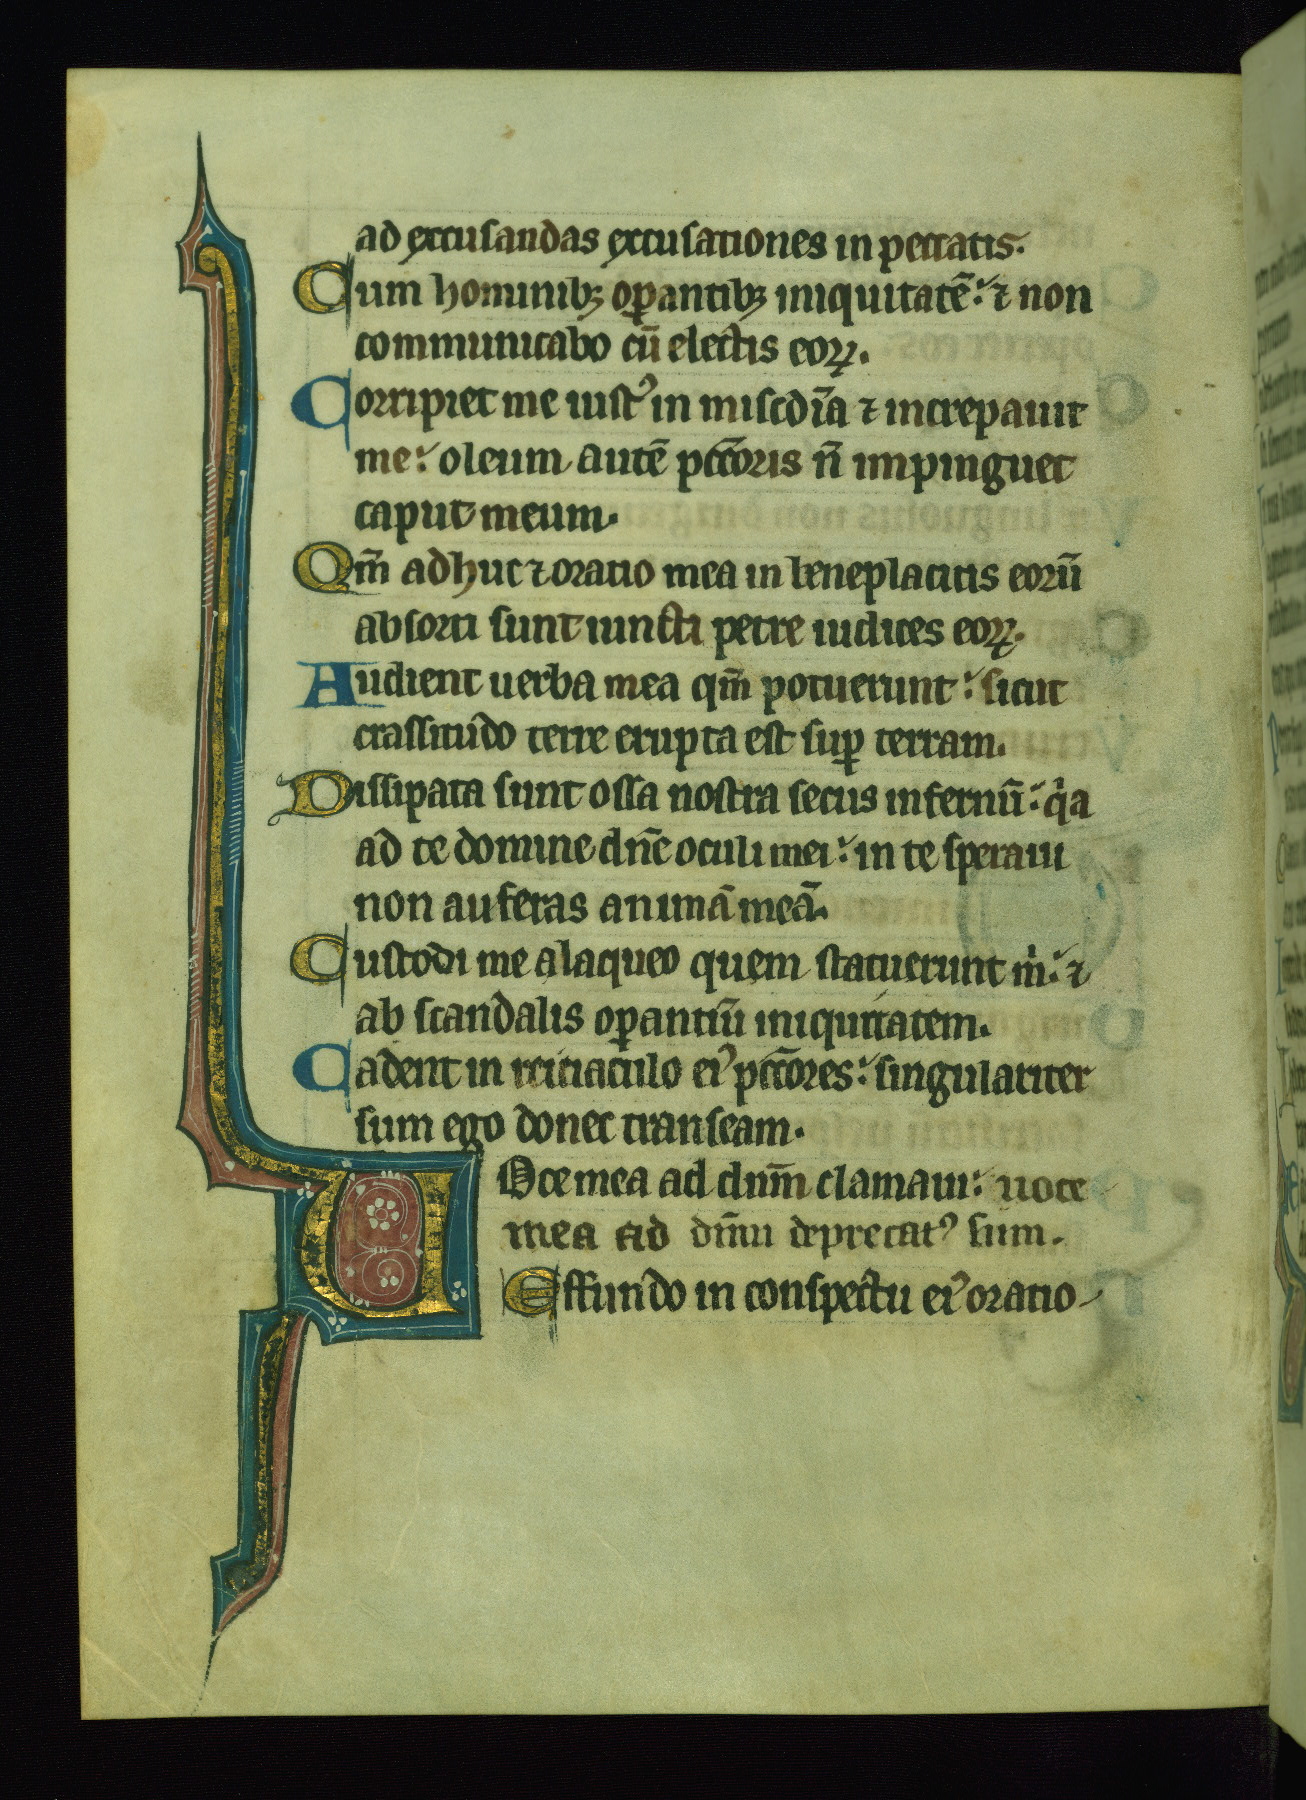 ad excusandas excusationes in peccatis.
Cum hominibꝫ oꝑantibꝫ iniquitatē: ⁊ non
communicabo cū electis eoꝝ.
Corripiet me iustꝰ in miscd̄ia ⁊ increpauit
me: oleum autē pccōris n̄ impinguet
caput meum.
Qm̄ adhuc ⁊ oratio mea in beneplacitis eorū
absorti sunt iuncti petre iudices eoꝝ.
Audient uerba mea qm̄ potuerunt: sicut
crassitudo terre erupta est suꝑ terram.
Dissipata sunt ossa nostra secus infernū: qͥa
ad te domine dn̄e oculi mei: in te speraui
non auferas animā meā.
Custodi me a laqueo quem statuerunt mͥ: ⁊
ab scandalis oꝑantiū iniquitatem.
Cadent in reciaculo eiꝰ pccōres: singulariter
sum ego donec transeam.
UOce mea ad dnm̄ clamaui: uoce
mea ad dm̄u deprecatꝰ sum.
Effundo in conspectu eiꝰ oratio-